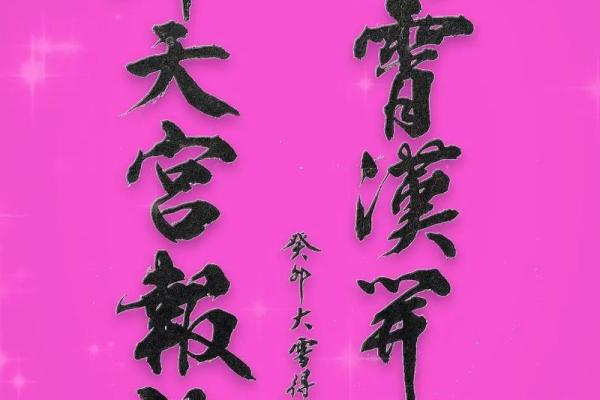 霄漢開
天宮報
癸卯大雪得